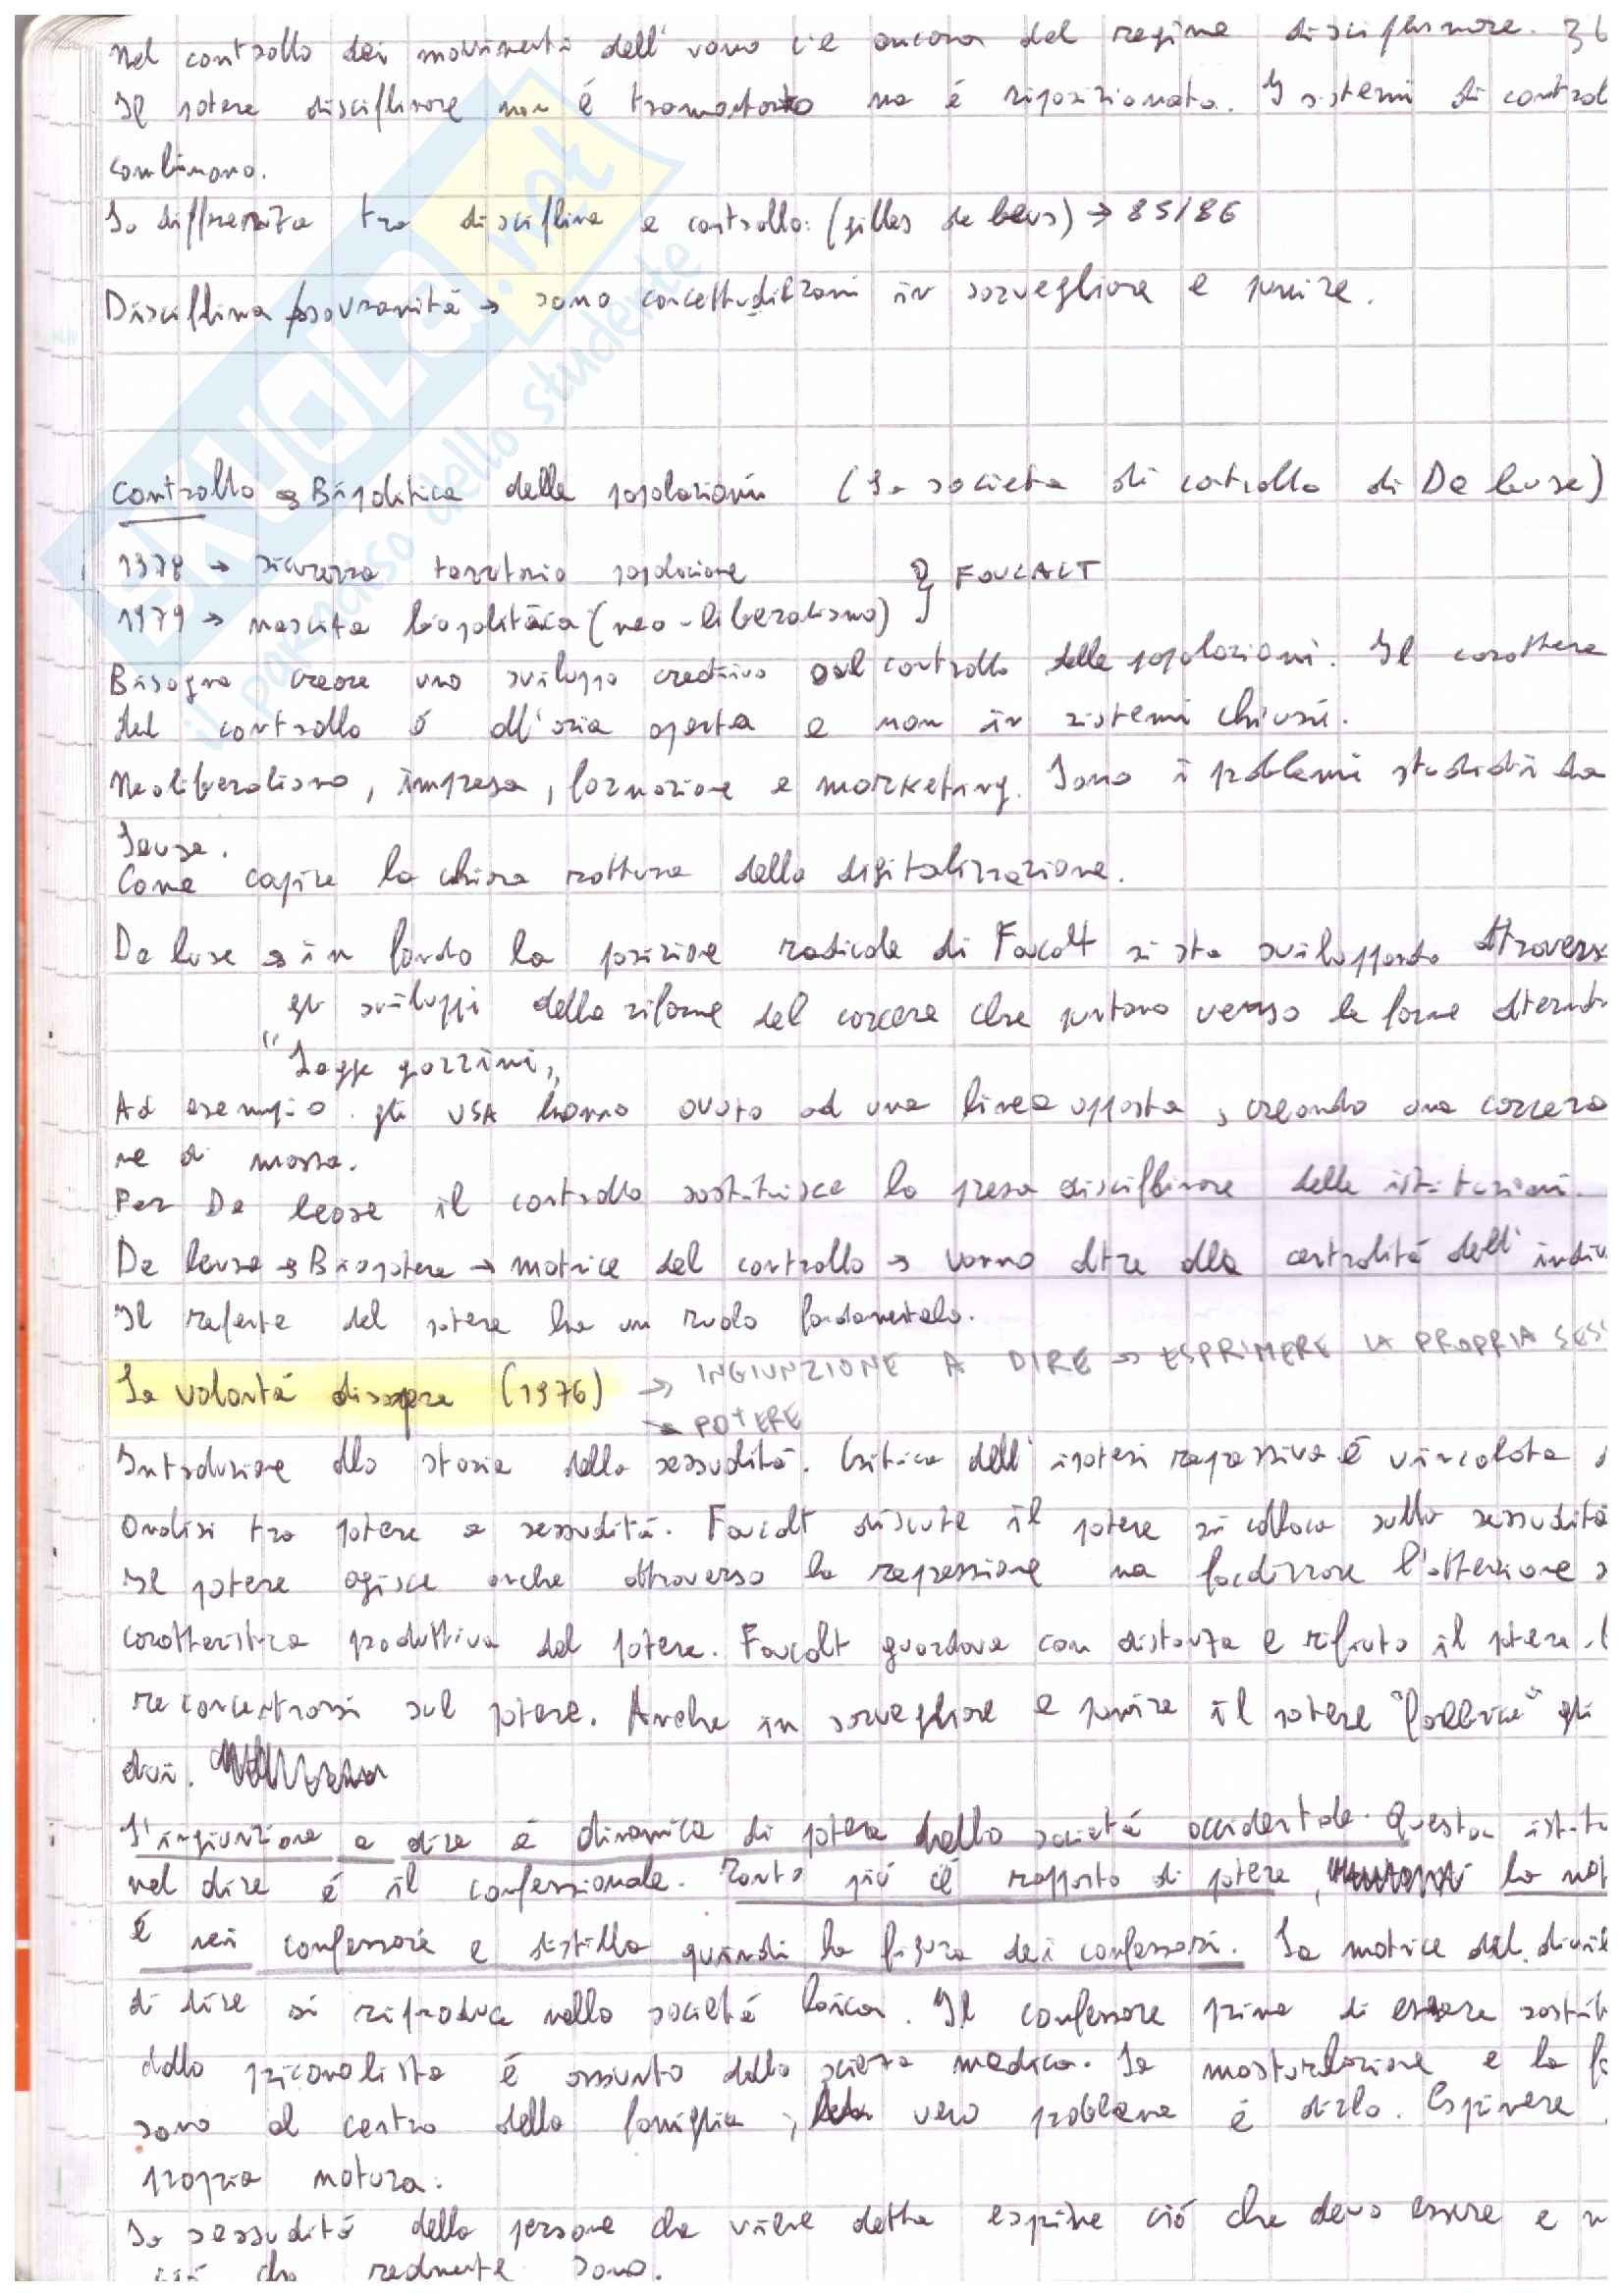 Nel controllo dei movimenti dell'uomo c'è ancora del regime disciplinare. 36
Il potere disciplinare non è tramontato ma è riposizionato. I sistemi di control
combinano.
La differenza tra disciplina e controllo: (gilles de leus) → 85/86
Disciplina sovranità → sono concettualizzani in sorvegliare e punire.
Controllo → Biopolitica delle popolazioni (La società di controllo di De leuse)
1978 → sicurezza territorio popolazione } FOUCALT
1979 → nascita biopolitica (neo-liberalismo)
Bisogna creare uno sviluppo creativo dal controllo delle popolazioni. Il carattere
del controllo è all'aria aperta e non in sistemi chiusi.
Neoliberalismo, impresa, formazione e marketing. Sono i problemi studiati da
leuse.
Come capire la chiara rottura della digitalizzazione.
De leuse → in fondo la posizione radicale di Focalt si sta sviluppando attravers
gli sviluppi delle riforme del carcere che puntano verso le forme alternat
"Legge gozzini"
Ad esempio gli USA hanno avuto ad una linea opposta, creando una carcera
ne di massa.
Per De leuse il controllo sostituisce la presa disciplinare delle istituzioni.
De leuse → Biopotere → matrice del controllo → vanno oltre alla centralità dell'indiv
Il referte del potere ha un ruolo fondamentale.
La volontà di sapere (1976) → INGIUNZIONE A DIRE → ESPRIMERE LA PROPRIA SESS
→ POTERE
Introduzione alla storia della sessualità. Critica dell'ipotesi repressiva è vincolata
analisi tra potere e sessualità. Foucalt discute il potere si colloca sulla sessualità
Il potere agisce anche attraverso la repressione ma focalizzare l'attenzione s
caratteristica produttiva del potere. Foucalt guardava con distanza e rifiuto il potere.
re concentrarsi sul potere. Anche in sorvegliare e punire il potere "fabbrica" gli
dui.
L'ingiunzione a dire è dinamica di potere della società occidentale. Questa istitu
nel dire è il confessionale. Tanto più c'è rapporto di potere, la
è nei confessore e distilla quindi la figura dei confessori. La matrice del
di dire si riproduce nella società laica. Il confessore prima di essere sostit
dallo psicanalista è assunto dalla scienza medica. La masturbazione e la
sono al centro della famiglia, vero problema è dirlo. Esprimere
propria natura.
La sessualità della persona che viene detta esprime ciò che devo essere e n
ciò che realmente sono.
SKUOLA.net
il paradiso dello studente